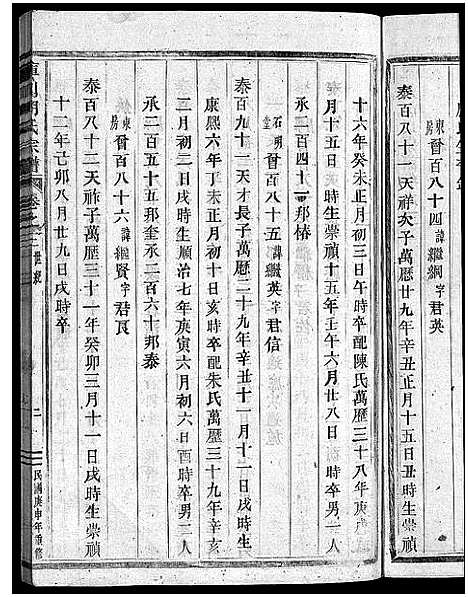 東房晉百八十四諱繼綱字君英
泰百八十一天祚次子萬曆廿九年辛丑正月十五日丑時生崇禎
十六年癸未正月三日午時卒配陳氏萬曆三十八年庚戌
月十五日時生崇禎十五年壬午六月廿八日時卒男一人
承二百四十一邦椿
石明晉百八十五諱繼英字君信
泰百九十一天才長子萬曆二十九年辛丑十一月十一日戌時生
康熙六年丁未正月初十日亥時卒配朱氏萬曆三十九年辛亥
三月初三日戌時生順治七年庚寅六月初六日酉時卒男二人
承二百五十五邦奎承二百六十邦泰
東房晉百八十六諱繼賢字君良
泰百八十二天祚子萬曆三十一年癸卯三月十一日戌時生崇禎
十二年己卯八月廿九日戌時卒
氏宗譜
卷之二
世系
二
民國庚申年重修